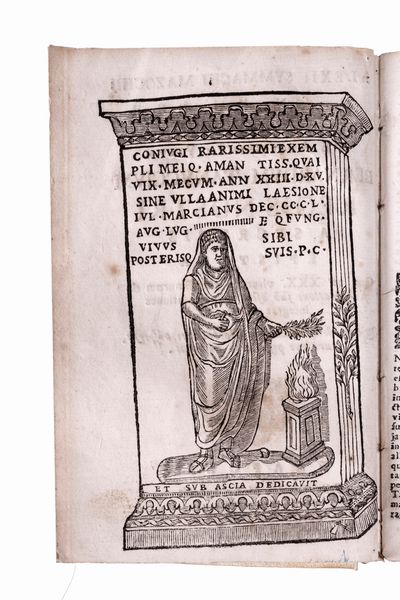 CONIVGI RARISSIMI EXEM
PLI MEIQ·AMAN TISS·QVAI
VIX·MECVM·ANN XXIII·D·X V.
SINE VLLA ANIMI LAESIONE
IVL·MARCIANVS DEC·CC·C·L·
AVG·LVG· E Q̃ FVNG.
VIVVS SIBI
POSTERISQ SVIS·P·C·
ET SVB ASCIA DEDICAVIT